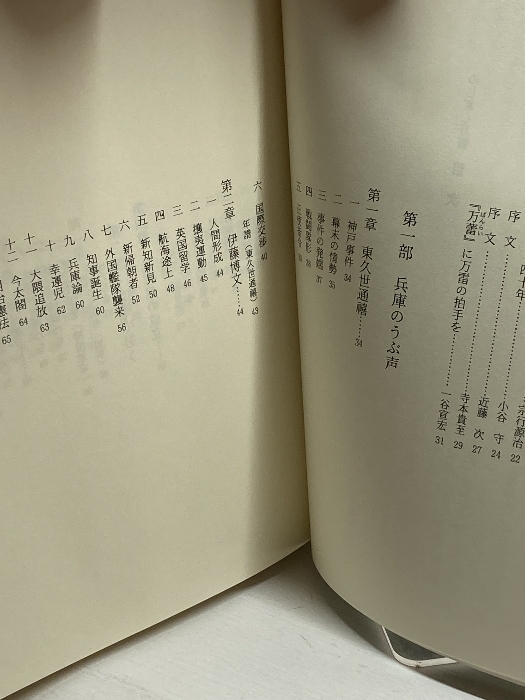 序 四十年
宗行源治 22
序 文 小谷 守 24
序 文 近藤 次 27
『万蕾』に万雷の拍手を 寺本貴至 29
一谷宣宏 31
第一部 兵庫のうぶ声
第一章 東久世通禧 34
一 神戸事件 34
二 幕末の情勢 35
三 事件の発端 37
四 戦闘残影
五
六 国際交渉 40
年譜(東久世通禧) 43
第二章 伊藤博文 44
一 人間形成 44
二 攘夷運動 45
三 英国留学 46
四 航海途上 48
五 新知新見 50
六 新帰朝者 52
七 外国艦隊襲来 56
八 知事誕生 60
九 兵庫論 60
十 幸運児 62
十一 大隈追放 63
十二 今太閤 64
憲法 65